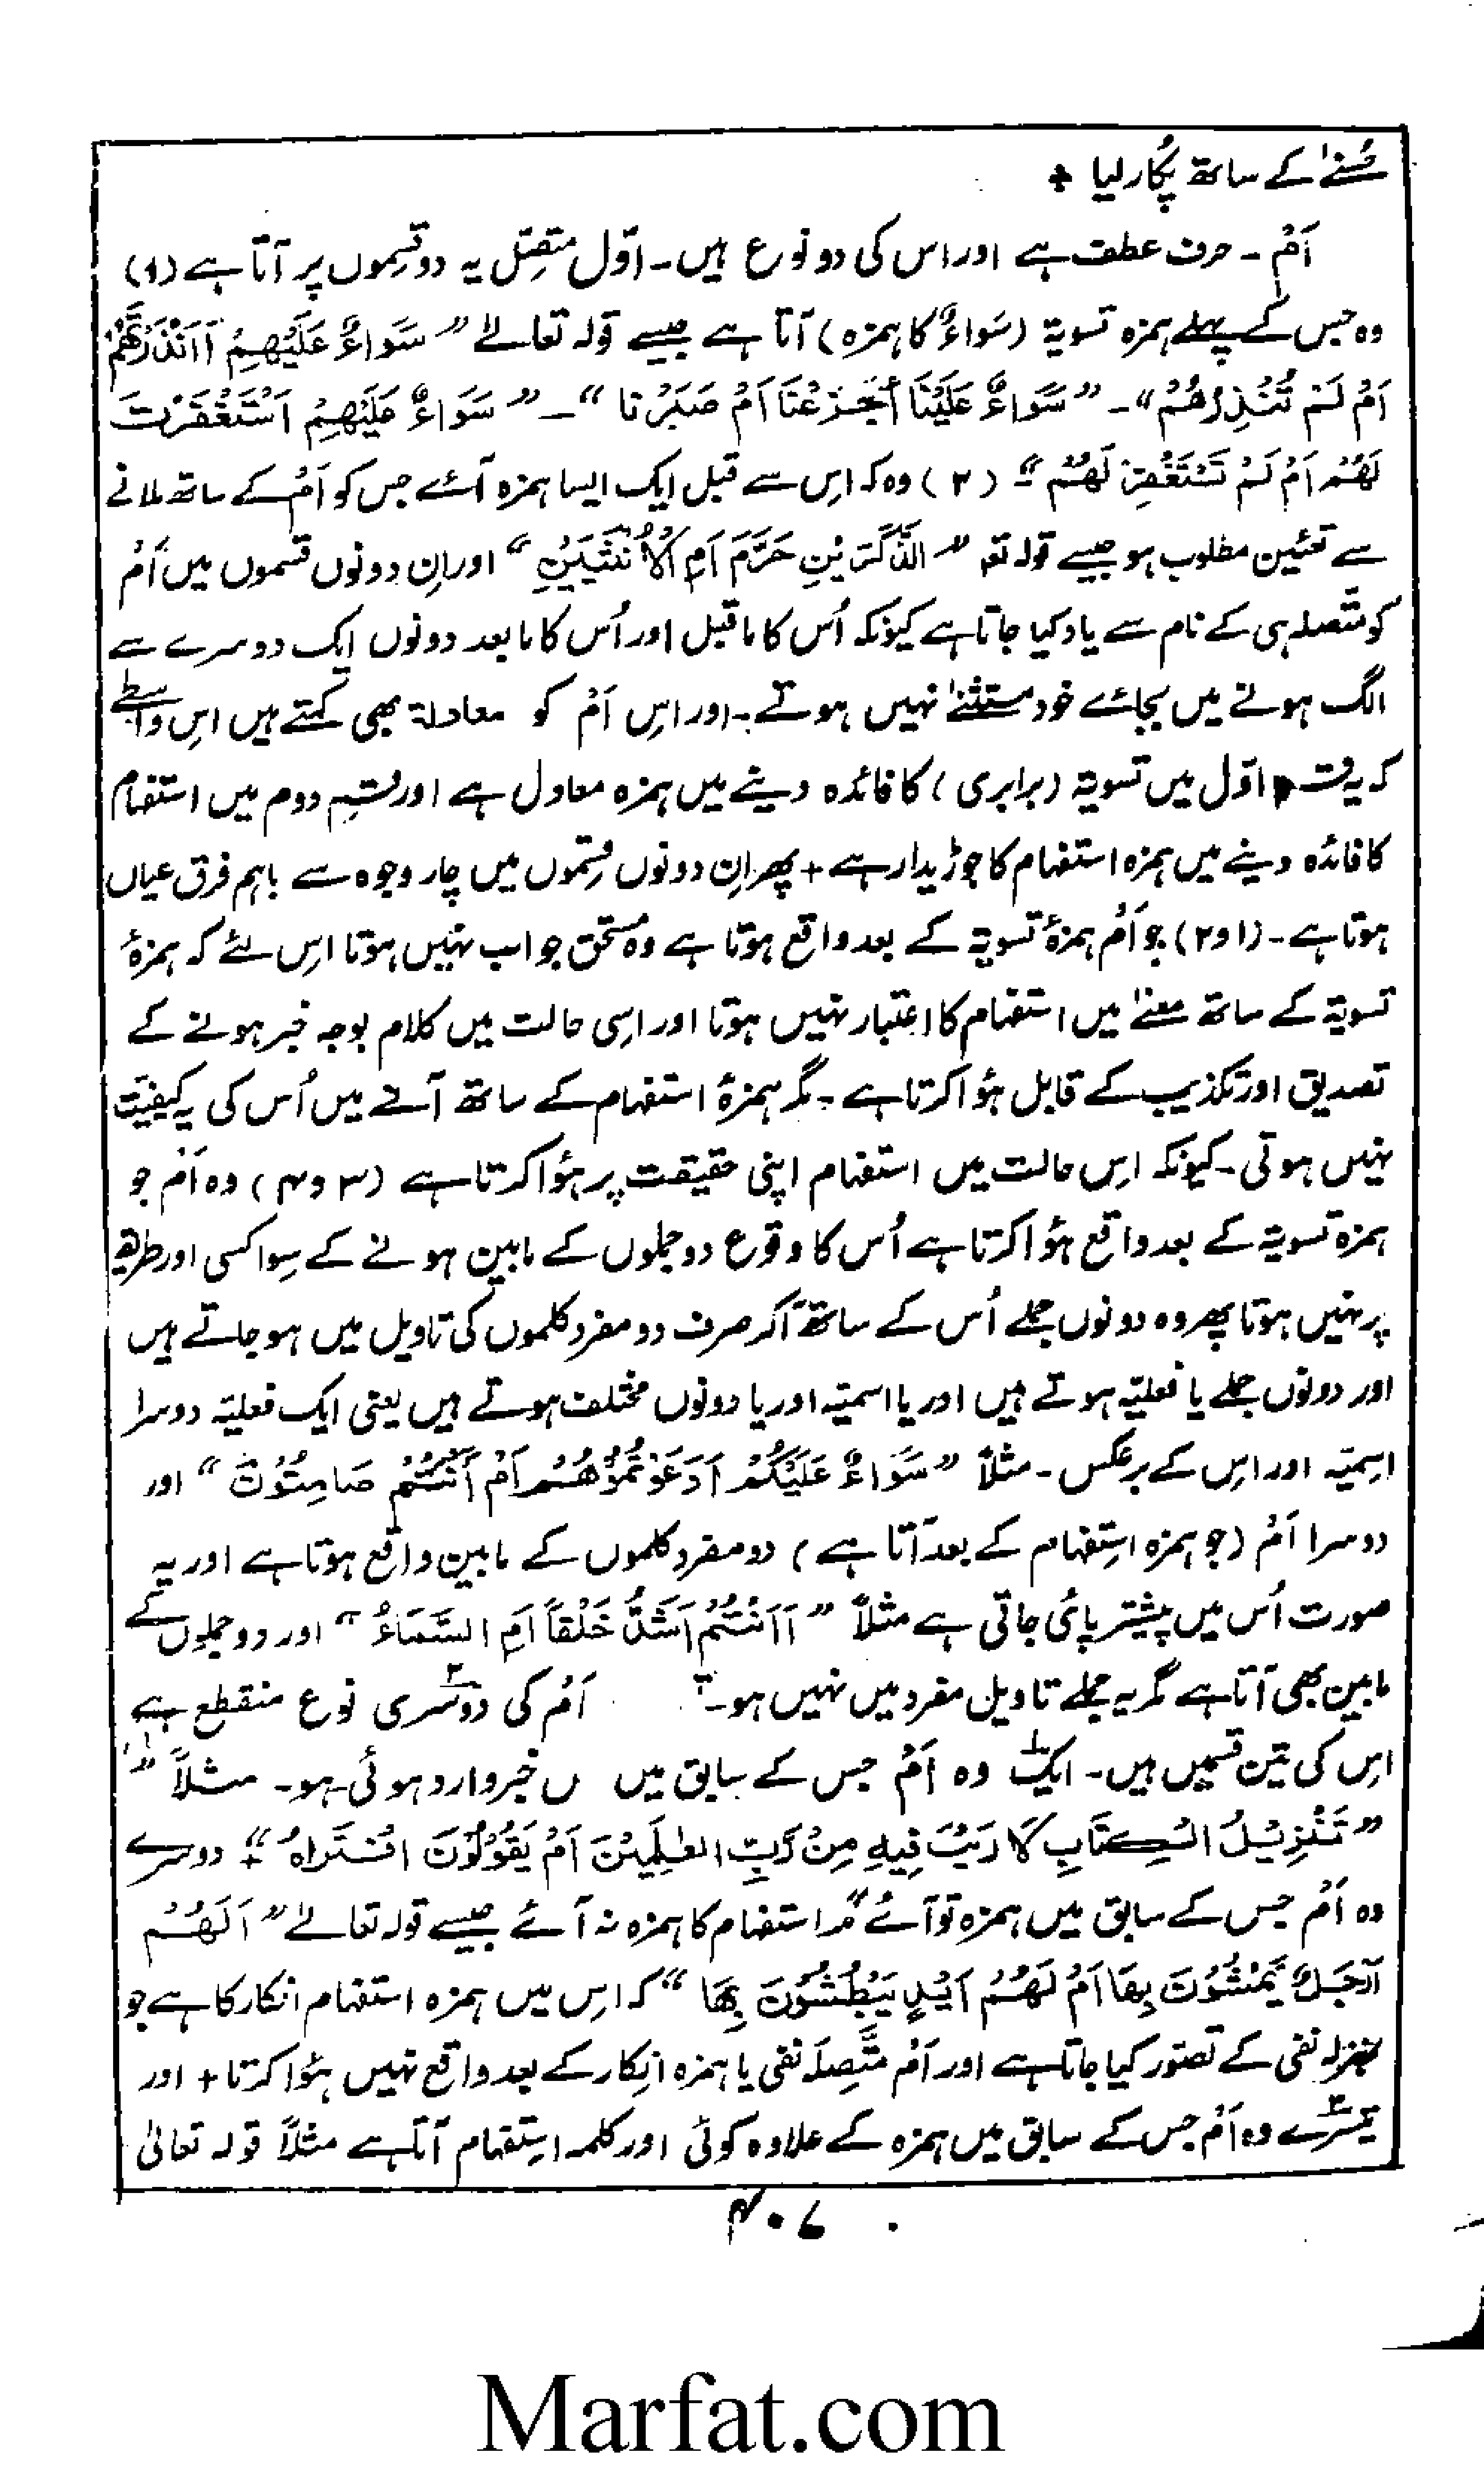 حُسنےٰ کے ساتھ پُکار لیا +
اَمْ ۔ حرف عطف ہے اور اس کی دو نوع ہیں ۔ اوّل متّصِل یہ دو قسِموں پر آتا ہے (۱)
وہ جس کے پہلے ہمزہ تسویۃ (سَواءٌ کا ہمزہ) آتا ہے جیسے قولہ تعالےٰ " سَوَاءٌ عَلَیْهِمْ أَاَنْذَرْتَهُمْ
اَمْ لَمْ تُنْذِرْهُمْ " ۔ " سَوَاءٌ عَلَیْنَا أَجَزِعْنَا اَمْ صَبَرْنَا " ۔ " سَوَاءٌ عَلَیْهِمْ اَسْتَغْفَرْتَ
لَهُمْ اَمْ لَمْ تَسْتَغْفِرْ لَهُمْ " ۔ (۲) وہ کہ اس سے قبل ایک ایسا ہمزہ آئے جس کو اَمْ کے ساتھ ملانے
سے تعئین مطلوب ہو جیسے قولہ تعہ " الذَّكَرَیْنِ حَرَّمَ اَمِ الْاُنْثَیَیْنِ " اور اِن دونوں قسموں میں اَمْ
کو متّصلہ ہی کے نام سے یاد کیا جاتا ہے کیونکہ اُس کا ماقبل اور اُس کا مابعد دونوں ایک دوسرے سے
الگ ہونے میں بجائے خود مستثنےٰ نہیں ہوتے ۔ اور اس اَمْ کو معادلۃ بھی کہتے ہیں اس واسطے
کہ یہ قسم اوّل میں تسویۃ (برابری) کا فائدہ دینے میں ہمزہ معادل ہے اور قسم دوم میں استفہام
کا فائدہ دینے میں ہمزہ استفہام کا جوڑیدار ہے + پھر اِن دونوں قِسموں میں چار وجوہ سے باہم فرق عیاں
ہوتا ہے ۔ (۱و۲) جو اَمْ ہمزۂ تسویۃ کے بعد واقع ہوتا ہے وہ مستحق جواب نہیں ہوتا اِس لئے کہ ہمزۂ
تسویۃ کے ساتھ معنےٰ میں استفہام کا اعتبار نہیں ہوتا اور اسی حالت میں کلام بوجہ خبر ہونے کے
تصدیق اور تکذیب کے قابل ہؤا کرتا ہے ۔ مگر ہمزۂ استفہام کے ساتھ آنے میں اُس کی یہ کیفیّت
نہیں ہوتی ۔ کیونکہ اِس حالت میں استفہام اپنی حقیقت پر ہؤا کرتا ہے (۳ و۴) وہ اَمْ جو
ہمزہ تسویۃ کے بعد واقع ہؤا کرتا ہے اُس کا وقوع دو جملوں کے مابین ہونے کے سِوا کسی اور طریقہ
پر نہیں ہوتا پھر وہ دونوں جملے اُس کے ساتھ آکر صرف دو مفرد کلموں کی تاویل میں ہو جاتے ہیں
اور دونوں جملے یا فعلیّہ ہوتے ہیں اور یا اسمیّہ اور یا دونوں مختلف ہوتے ہیں یعنی ایک فعلیّہ دوسرا
اسمیّہ اور اس کے برعکس ۔ مثلاً " سَوَاءٌ عَلَیْكُمْ اَدَعَوْتُمُوْهُمْ اَمْ اَنْتُمْ صَامِتُوْنَ " اور
دوسرا اَمْ (جو ہمزہ استفہام کے بعد آتا ہے) دو مفرد کلموں کے مابین واقع ہوتا ہے اور یہ
صورت اُس میں بیشتر پائی جاتی ہے مثلاً " أَاَنْتُمْ اَشَدُّ خَلْقاً اَمِ السَّمَاءُ " اور دو جملوں کے
مابین بھی آتا ہے مگر یہ جملے تاویل مفرد میں نہیں ہو اَمْ کی دوسری نوع منقطع ہے
اس کی تین قسمیں ہیں ۔ ایک وہ اَمْ جس کے سابق میں ں خبر وارد ہوئی ہو ۔ مثلاً "
" تَنْزِیْلُ الْكِتَابِ لَا رَیْبَ فِیْهِ مِنْ رَّبِّ الْعٰلَمِیْنَ اَمْ یَقُوْلُوْنَ افْتَرَاهُ " + دوسرے
وہ اَمْ جس کے سابق میں ہمزہ تو آئے مگر استفہام کا ہمزہ نہ آئے جیسے قولہ تعالےٰ " اَلَهُمْ
اَرْجُلٌ یَّمْشُوْنَ بِهَا اَمْ لَهُمْ اَیْدٍ یَبْطُشُوْنَ بِهَا " کہ اِس میں ہمزہ استفہام انکار کا ہے جو
بمنزلہ نفی کے تصوّر کیا جاتا ہے اور اَمْ متّصِلہ نفی یا ہمزہ انکار کے بعد واقع نہیں ہؤا کرتا + اور
تیسرے وہ اَمْ جس کے سابق میں ہمزہ کے علاوہ کوئی اور کلمہ استفہام آتا ہے مثلاً قولہ تعالیٰ
۴۰۷
Marfat.com